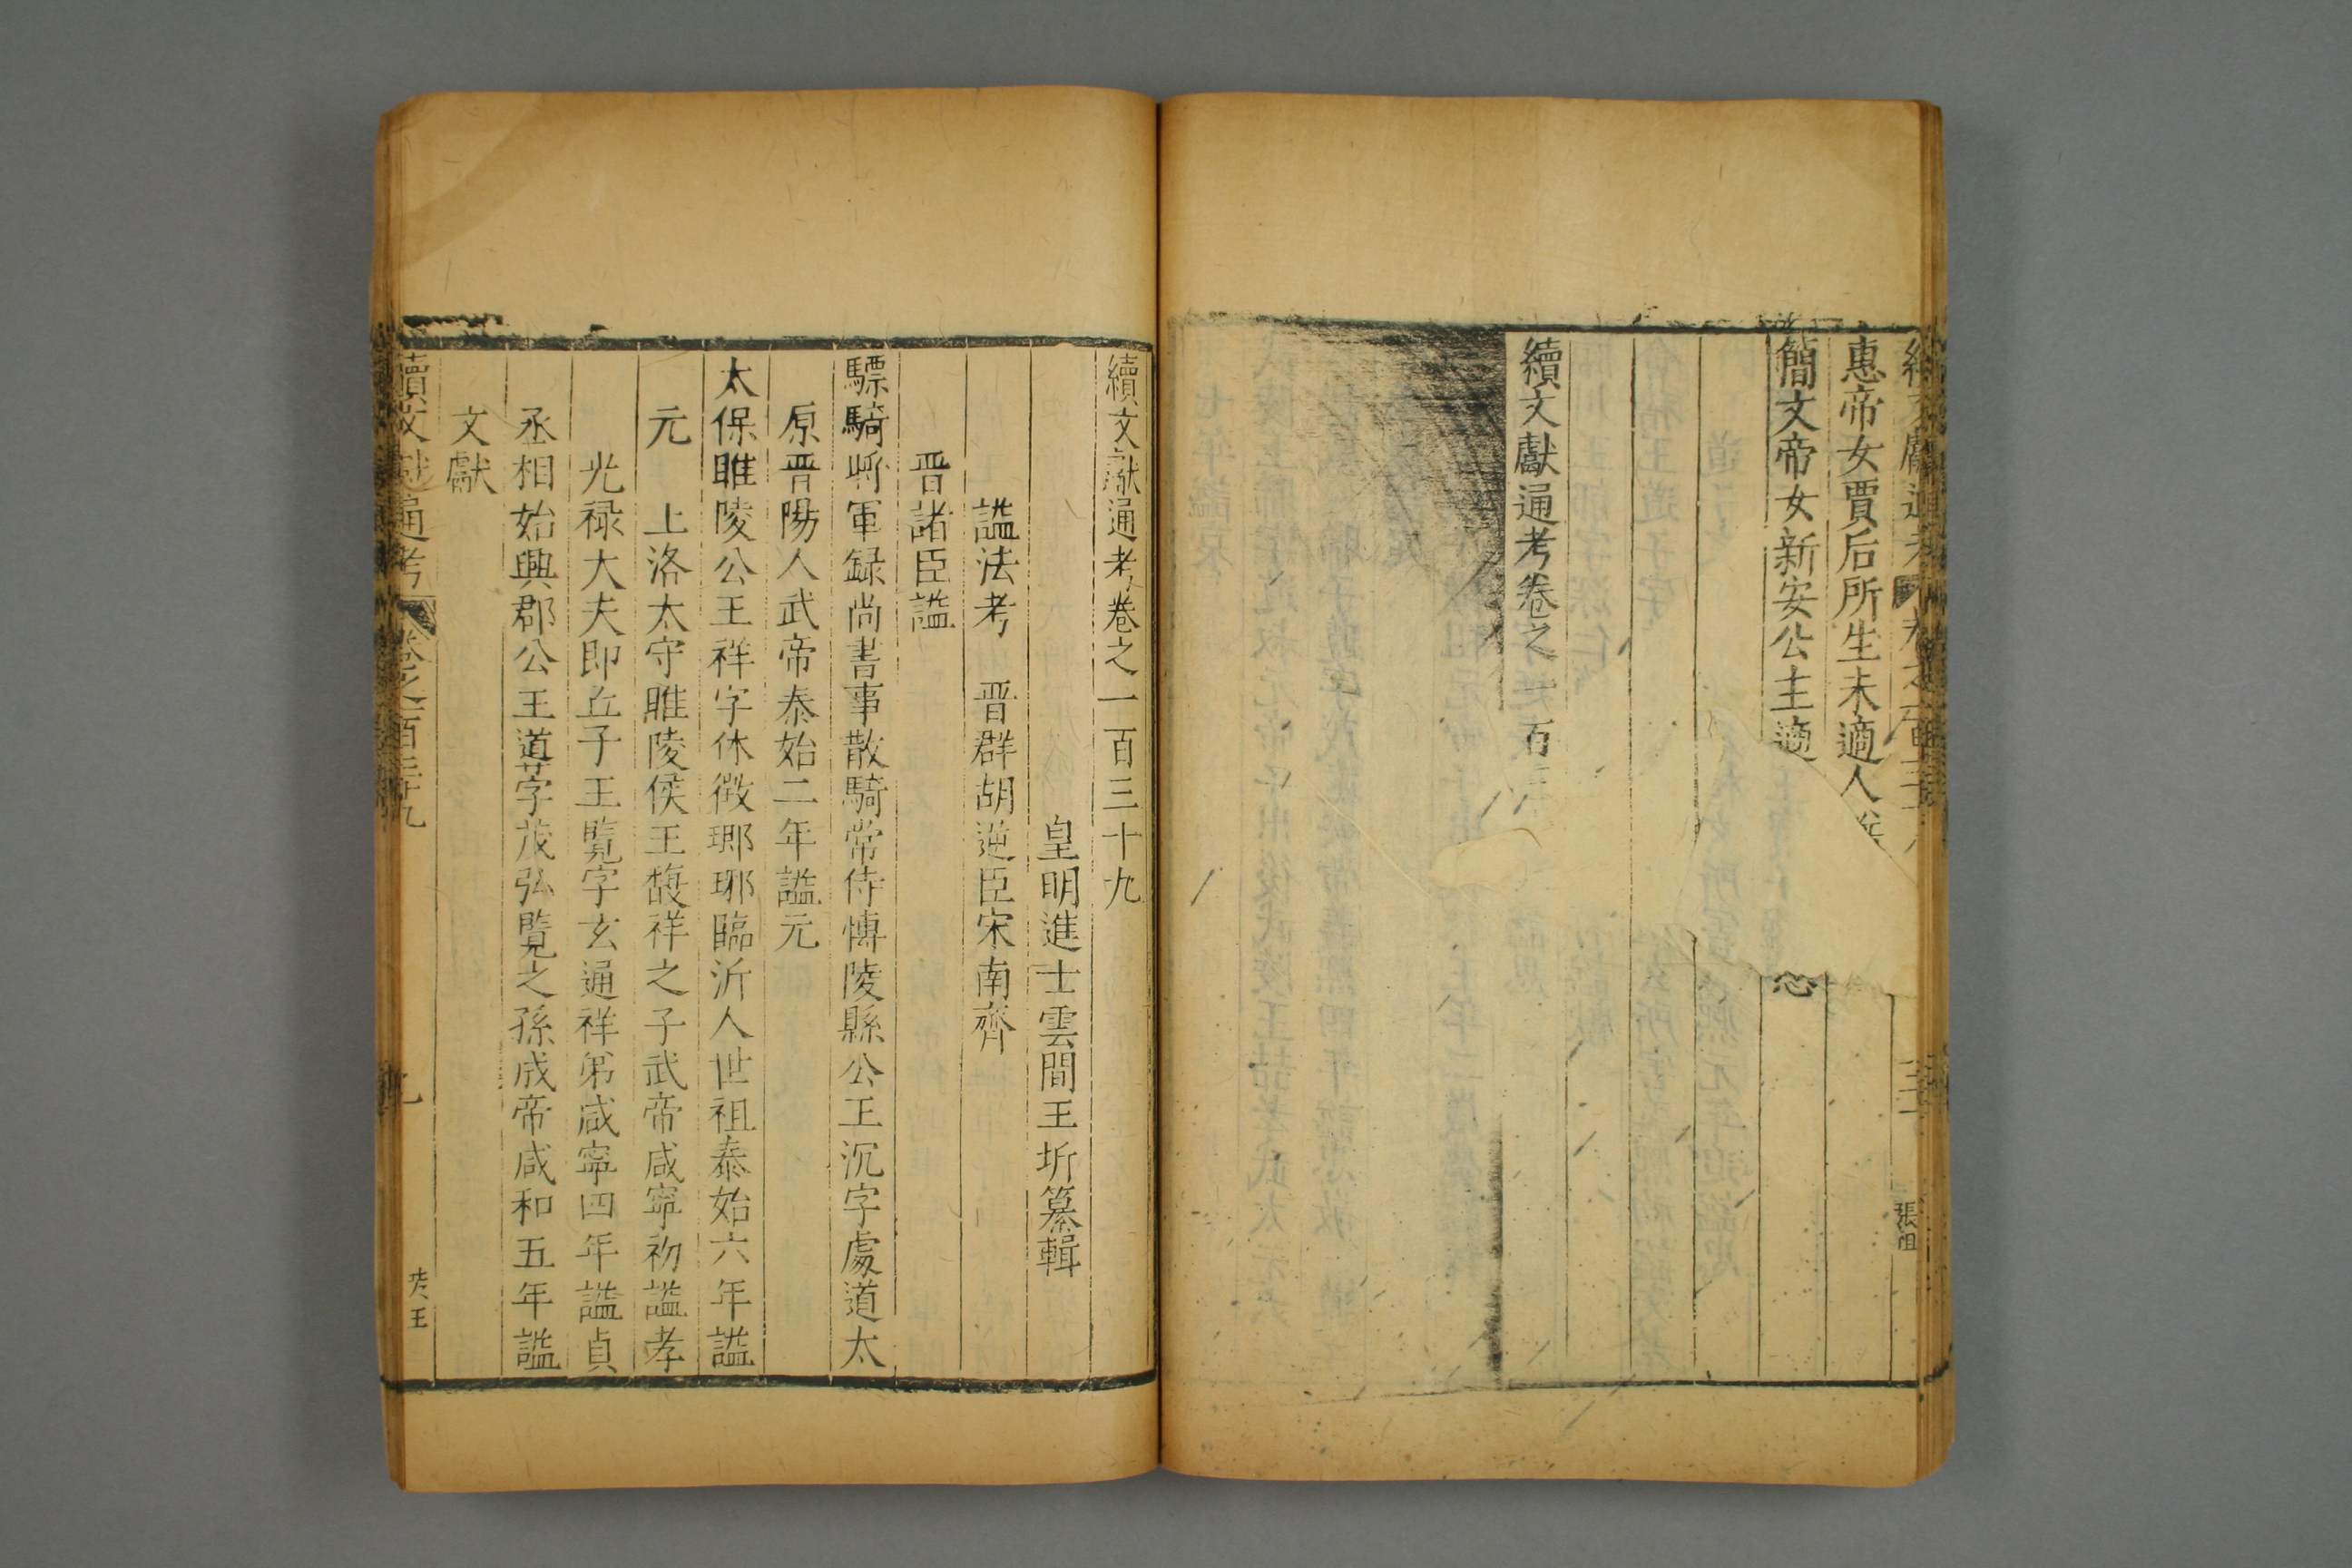 惠帝女賈后所生未適人
簡文帝女新安公主適
續文獻通考卷之一百三
三十一
續文獻通考卷之一百三十九
皇明進士雲間王圻纂輯
諡法考　晋群胡逆臣宋南齊
晋諸臣謚
驃騎將軍録尚書事散騎常侍愽陵縣公王沉字處道太
原晋陽人武帝泰始二年謚元
太保睢陵公王祥字休徵瑯琊臨沂人世祖泰始六年謚
元　上洛太守睢陵侯王馥祥之子武帝咸寜初謚孝
光禄大夫即丘子王覽字玄通祥弟咸寜四年謚貞
丞相始興郡公王導字茂弘覽之孫成帝咸和五年謚
文獻
續文獻通考　卷之一百三十九